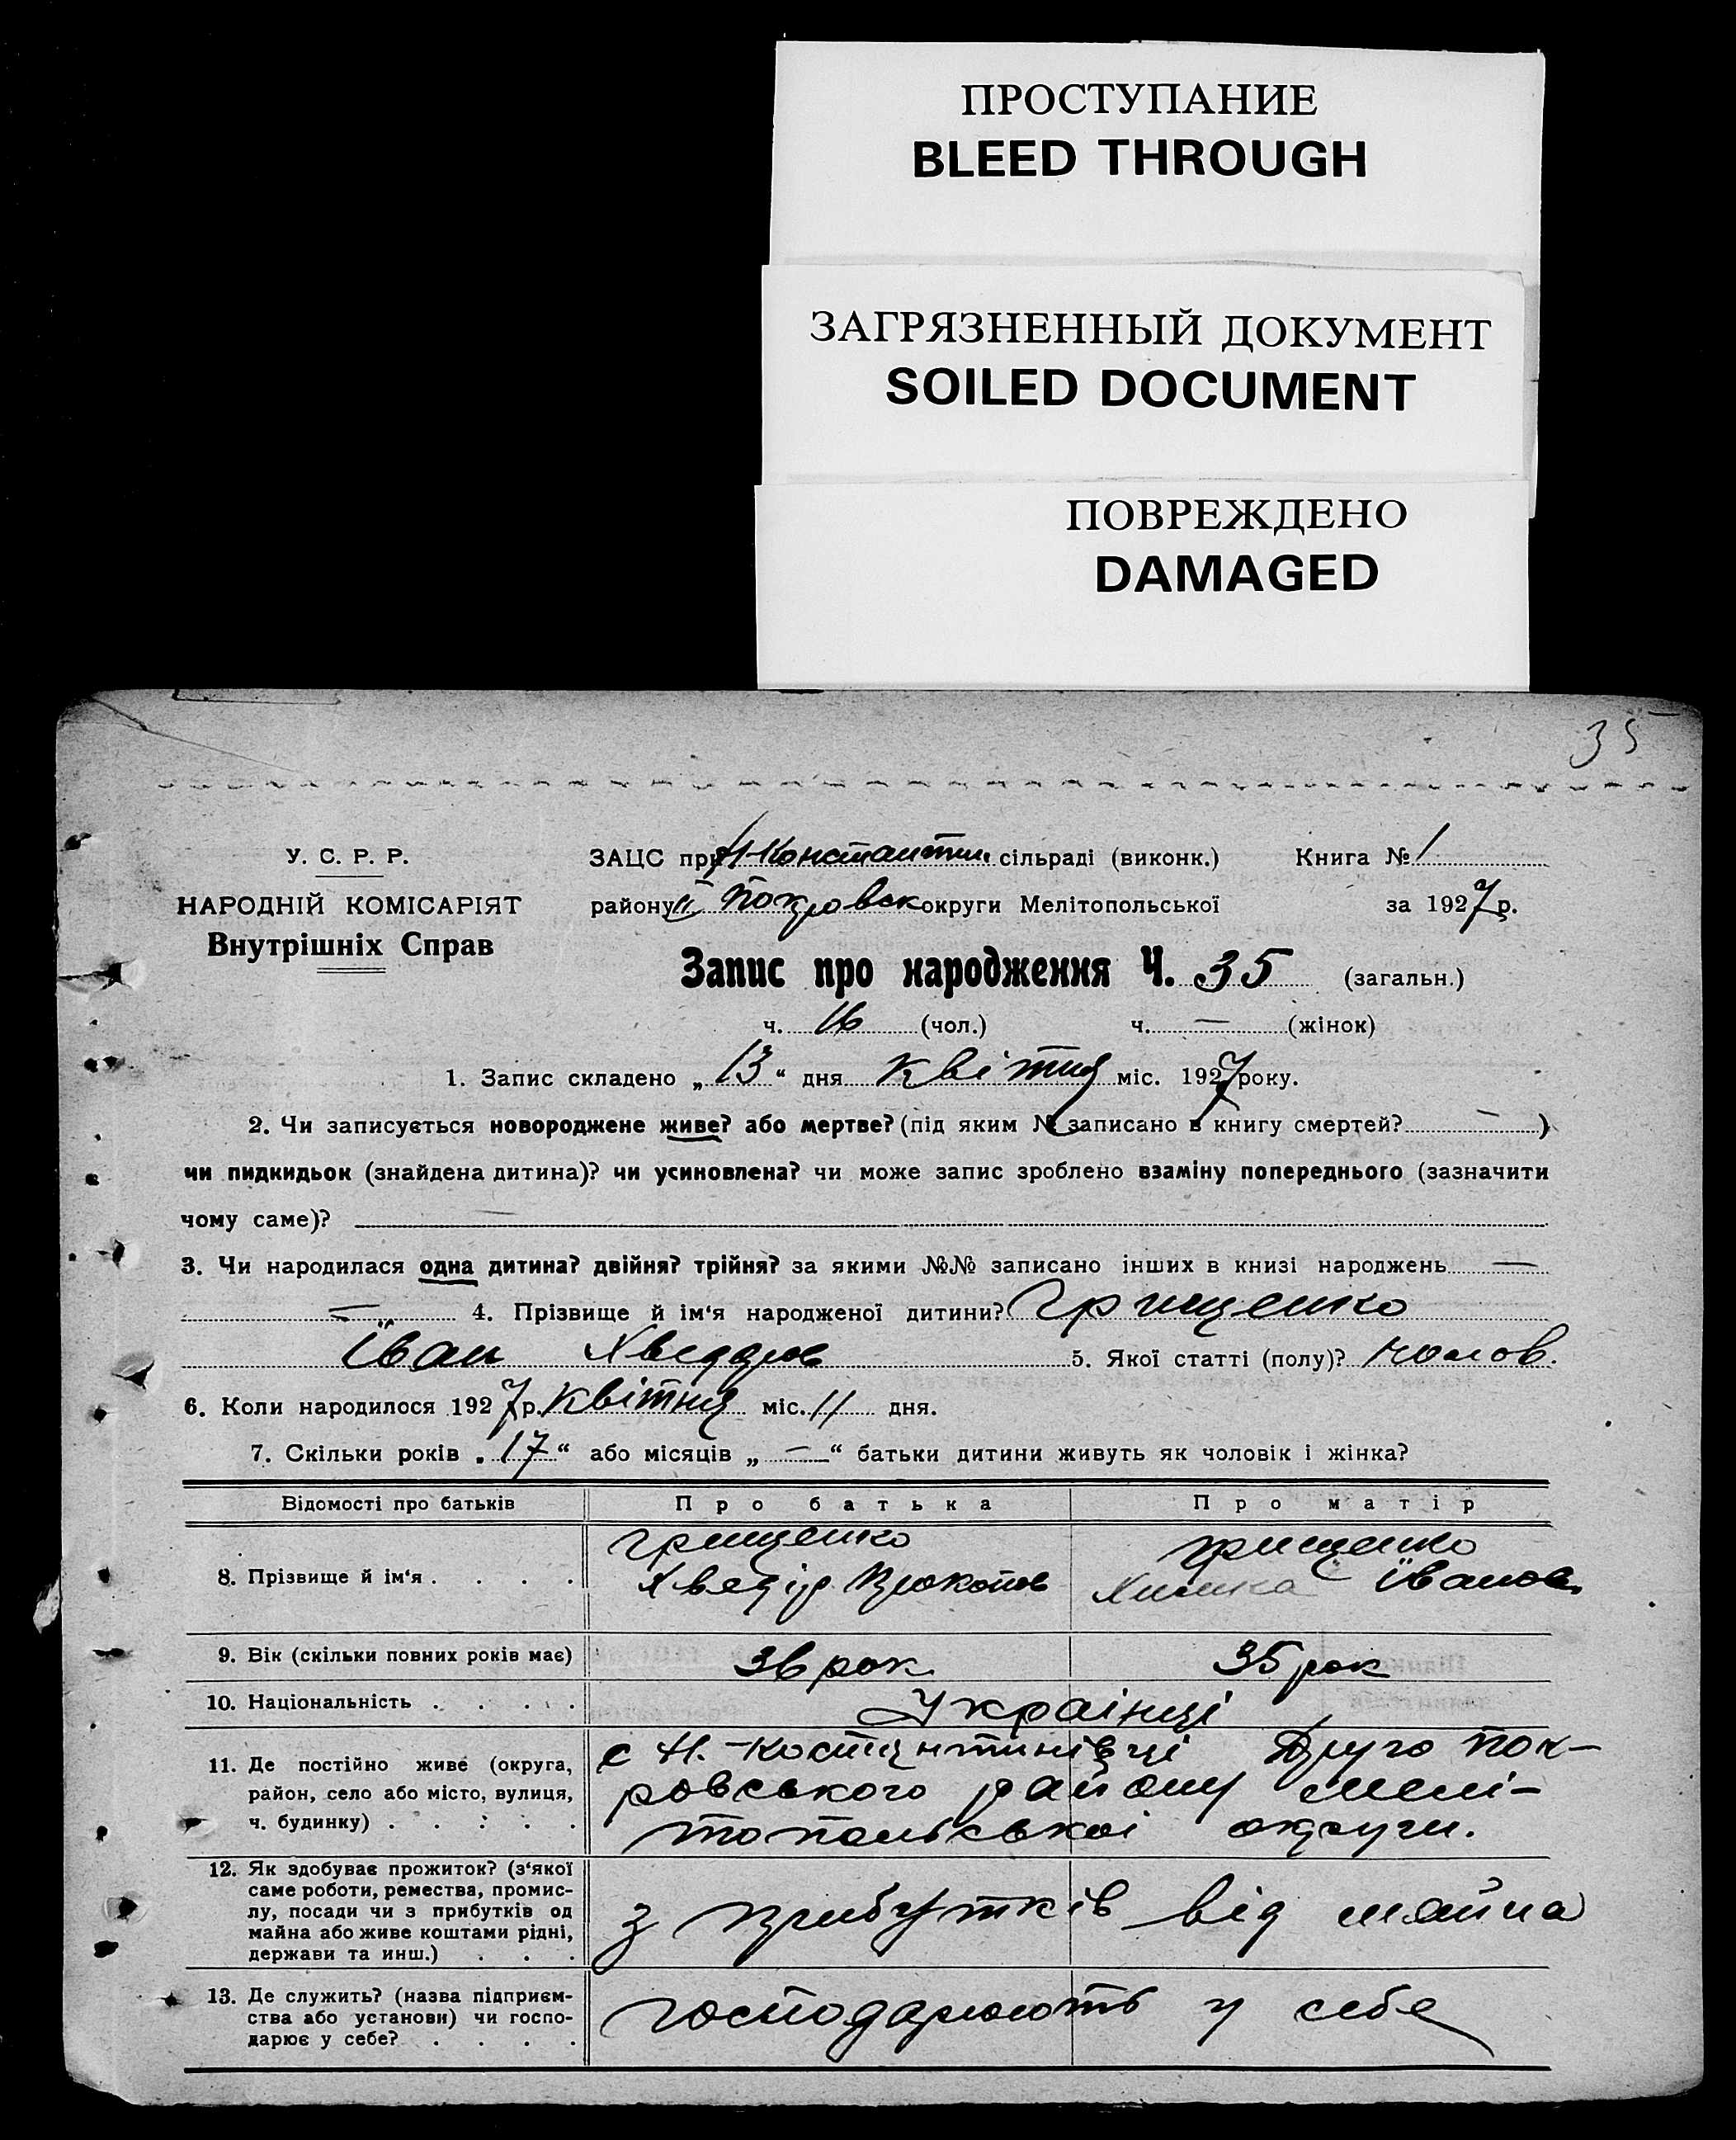 ПРОСТУПАНИЕ
BLEED THROUGH
ЗАГРЯЗНЕННЫЙ ДОКУМЕНТ
SOILED DOCUMENT
ПОВРЕЖДЕНО
DAMAGED
35
У. С. Р. Р.
ЗАЦС при Н-Константин. сільраді (виконк.) Книга № 1
НАРОДНІЙ КОМІСАРІЯТ
району II Покровськ округи Мелітопольської за 1927 р.
Внутрішніх Справ
Запис про народження Ч. 35 (загальн.)
ч. 16 (чол.) ч. — (жінок)
1. Запис складено „13“ дня квітня міс. 1927 року.
2. Чи записується новороджене живе? або мертве? (під яким № записано в книгу смертей? — )
чи пидкидьок (знайдена дитина)? чи усиновлена? чи може запис зроблено взаміну попереднього (зазначити
чому саме)? —
3. Чи народилася одна дитина? двійня? трійня? за якими №№ записано інших в книзі народжень —
— 4. Прізвище й ім‘я народженої дитини? Грищенко
Іван Хведоров 5. Якої статті (полу)? чолов.
6. Коли народилося 1927 р. квітня міс. 11 дня.
7. Скільки років „17“ або місяців „ — “ батьки дитини живуть як чоловік і жінка?
Відомості про батьків Про батька Про матір
Грищенко Грищенко
8. Прізвище й ім‘я . . . . Хведір Прокопов Химка Іванов.
9. Вік (скільки повних років має) 36 рок 35 рок
10. Національність . . . . . Українці
11. Де постійно живе (округа, с Н.-Костянтинівці Друго Пок-
район, село або місто, вулиця, ровського району Мелі-
ч. будинку) . . : . . топольської округи.
12. Як здобуває прожиток? (з‘якої
саме роботи, ремества, промис-
лу, посади чи з прибутків од з прибутків від майна
майна або живе коштами рідні,
держави та инш.) . . .
13. Де служить? (назва підприєм-
ства або установи) чи госпо- господарюють у себе
дарює у себе? . . . .